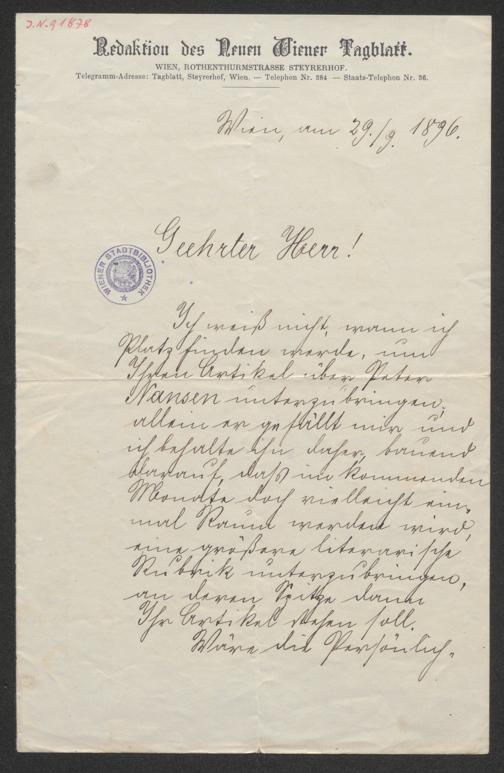 J.N. 91878
Redaktion des Neuen Wiener Tagblatt.
WIEN, ROTHENTHURMSTRASSE STEYRERHOF.
Telegramm-Adresse: Tagblatt, Steyrerhof, Wien. — Telephon Nr. 384 — Staats-Telephon Nr. 36.
Wien, am 29./9. 1896.
Geehrter Herr!
WIENER STADTBIBLIOTHEK
Ich weiß nicht, wann ich
Platz finden werde, um
Ihren Artikel über Peter
Nansen unterzubringen,
allein er gefällt mir, und
ich behalte ihn daher, bauend
darauf, daß im kommenden
Monate doch vielleicht ein-
mal Raum werden wird,
eine größere literarische
Rubrik unterzubringen,
an deren Spitze dann
Ihr Artikel stehen soll.
Wäre die Persönlich-